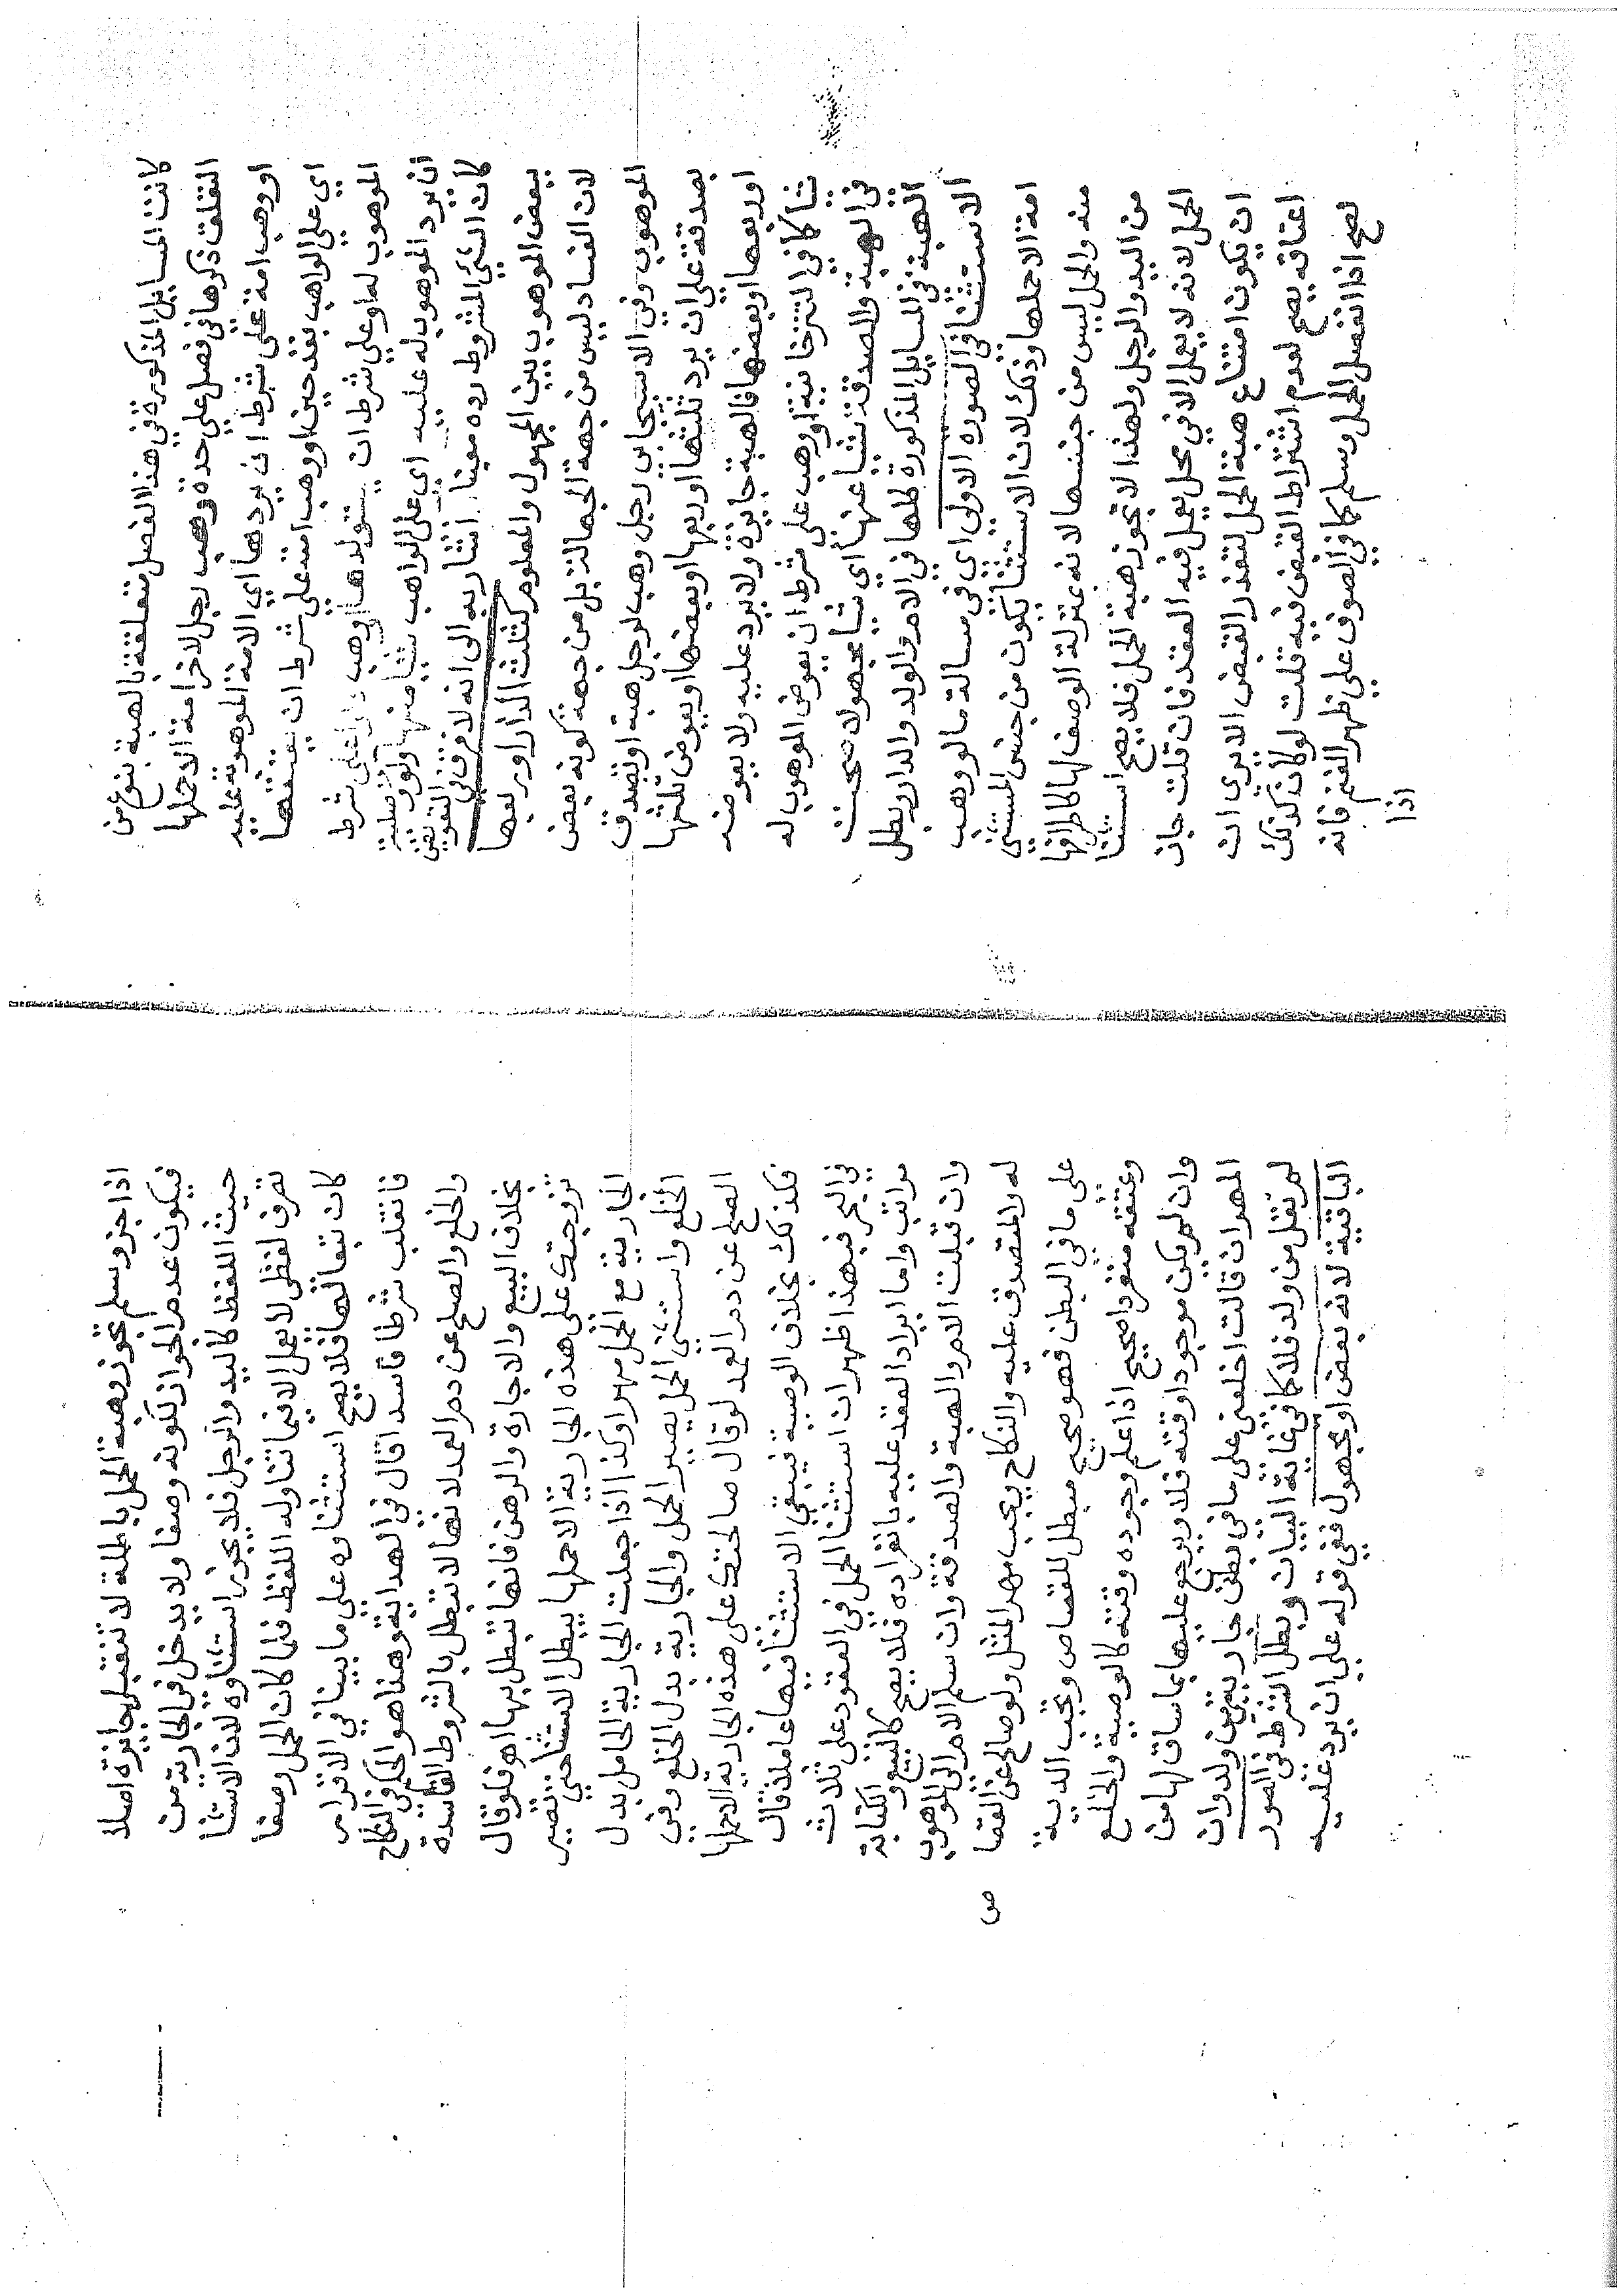 كانت المسايل المذكورة في هذا الفصل متعلقة بالهبة بنوع من
التعلق ذكرها في فصل على حدة وهب رجل لاخر امة الا حملها
او وهب امة على شرط ان يردها اي الامة الموهوبة عليه
اي على الواهب بعد حين او وهب امة على شرط ان يعتقها
الموهوب له او على شرط ان يستولدها او وهب دارا على شرط
ان يرد الموهوب له عليه اي على الواهب شيا منها
كان الشي المشروط رده معينا اشار به الى انه لا فرق في
ببعض الموهوب بين المجهول والمعلوم كثلث الدار او ربعها
لان الفساد ليس من جهة الجهالة بل من جهة كونه بعض
الموهوب وفي الاسبيجابي رجل وهب لرجل هبة او تصدق
بصدقة على ان يرد ثلثها او ربعها او بعضها او يعوض ثلثها
او ربعها او بعضها فالهبة جايزة ولا يرد عليه ولا يعوضه
شيا كما في التترخانية او وهب على شرط ان يعوض الموهوب له
في الهبة والصدقة شيا عنها اي شيا مجهولا صحت
الهبة في المسايل المذكورة كلها في الام والولد والدار وبطل
الاستثنا في الصورة الاولى اي في مسالة ما لو وهب
امة الا حملها وذلك لان الاستثنا يكون من جنس المستثنى
منه والحمل ليس من جنسها لانه بمنزلة الوصف لها كاطرافها
من اليد والرجل ولهذا لا تجوز هبة الحمل فلا يصح استثنا
الحمل لانه لا يعمل الا في محل يعمل فيه العقد فان قلت جاز
ان يكون امتناع هبة الحمل لتعذر القبض الا يرى ان
اعتاقه يصح لعدم اشتراط القبض فيه قلت لو كان كذلك
لصح اذا انفصل الحمل وسلم كما في الصوف على ظهر الغنم فانه
اذا
اذا جز وسلم تجوز وهبة الحمل باطلة لا تنقلب جايزة اصلا
فيكون عدم الجواز لكونه وصفا ولا يدخل في الجارية من
حيث اللفظ كاليد والرجل فلا يجوز استثناوه لان الاستثنا
تصرف لفظي لا يعمل الا فيما تناوله اللفظ فلما كان الحمل وصفا
كان تبعا لها فلا يصح استثناوه على ما بينا في الاقرار
فانقلب شرطا فاسدا قال في الهداية وهذا هو الحكم في النكاح
والخلع والصلح عن دم العمد لانها لا تبطل بالشروط الفاسدة
بخلاف البيع والاجارة والرهن فانها تبطل بها اهـ فلو قال
تزوجتك على هذه الجارية الا حملها يبطل الاستثنا حتى تصير
الجارية مع الحمل مهرا وكذا اذا جعلت الجارية الحامل بدل
الخلع واستثنى الحمل يصير الحمل والجارية بدل الخلع وفي
الصلح عن دم العمد لو قال صالحتك على هذه الجارية الا حملها
فكذلك بخلاف الوصية فيبقى الاستثنا فيها عاملا قال
في البحر فبهذا ظهر ان استثنا الحمل في العقود على ثلاث
مراتب واما ايراد العقد عليه بانفراده فلا يصح كالبيع والكتابة
وان قبلت الام والهبة والصدقة وان سلم الام الى الموهوب
له والمتصدق عليه والنكاح ويجب مهر المثل ولو صالح عن القصا
ص
على ما في البطن فهو صحيح مبطل للقصاص وتجب الدية
وعتقه منفردا صحيح اذا علم وجوده وقته كالوصية والخلع
وان لم يكن موجودا وقته فلا ويرجع عليها بما ساق لها من
المهر ان قالت اخلعني على ما في بطن جاريتي من ولد وان
لم تقل من ولد فلا كما في غاية البيان وبطل الشرط في الصور
الباقية لانه بعض او مجهول ففي قوله على ان يرد عليه